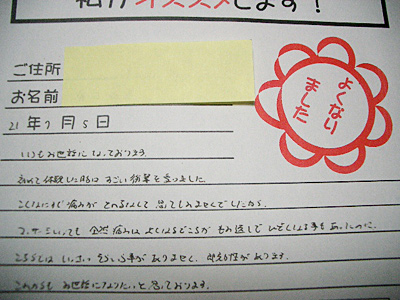 私がオススメします！
ご住所
お名前
よくなり
ました
21年7月5日
いつもお世話になっております。
初めて体験した時はすごい衝撃を立ちました
こんなにまで痛みがとれるなんて思ってもみませんでしたから。
マッサージしても全然痛みはよくなるどころかもみ返しでひどくなる事もあったのに、
こちらではいっさいそういう事がありません。
これからもお世話になりたいと思っております。